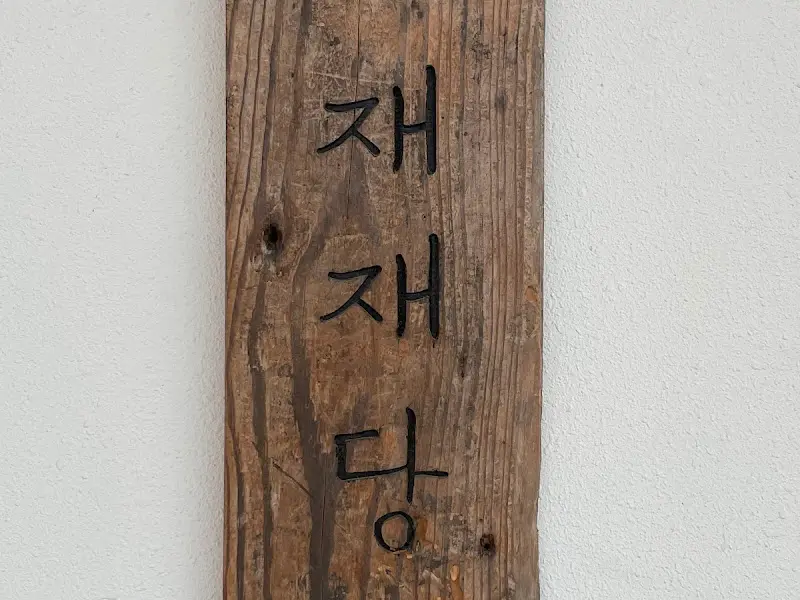 재재당